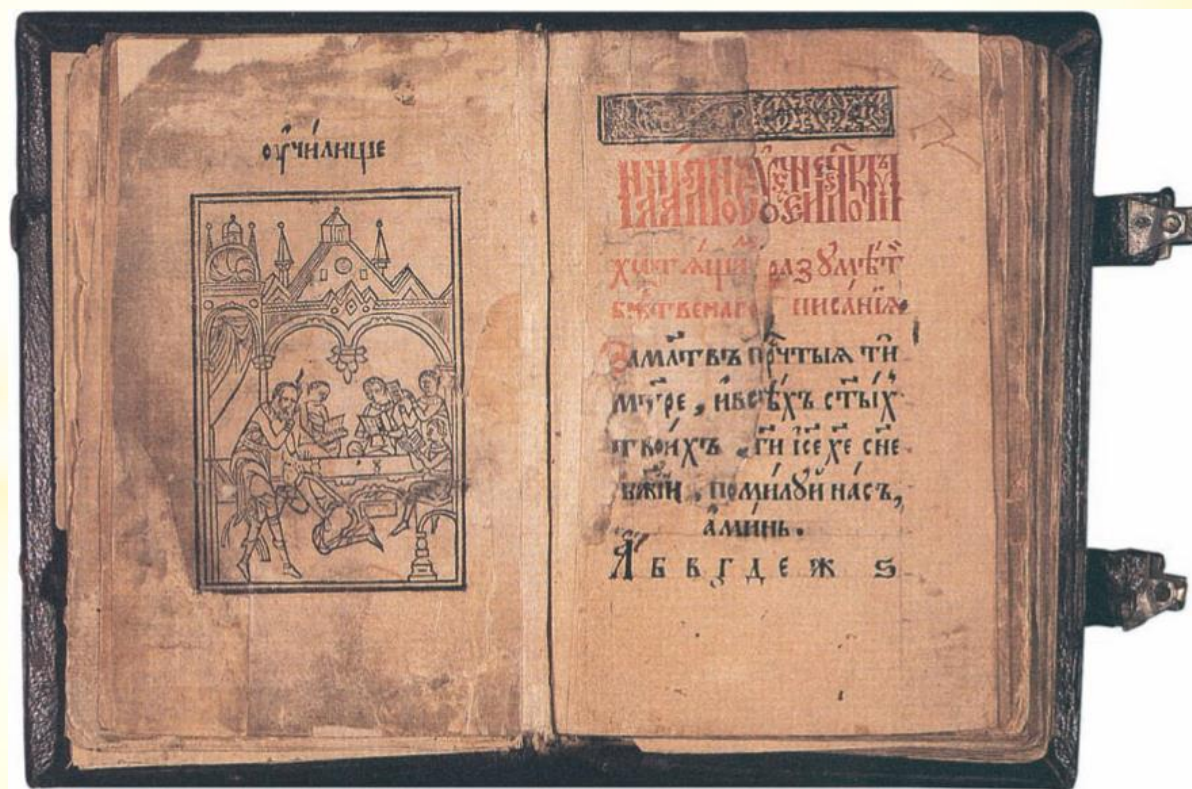 оу҆чи́лище
хотѧ́щиⷨ разꙋмѣ́т
бж҃ственаго писа́нїѧ
За мл҃твъ прч҃тыѧ ти
мт҃ре, и҆всѣ́хъ ст҃ы́х
твои́хъ, гй҃ і҆с҃е хе҃ сн҃е
бж҃їи, поми́лꙋй на́съ,
а҆ми́нь.
А б в г д е ж ѕ